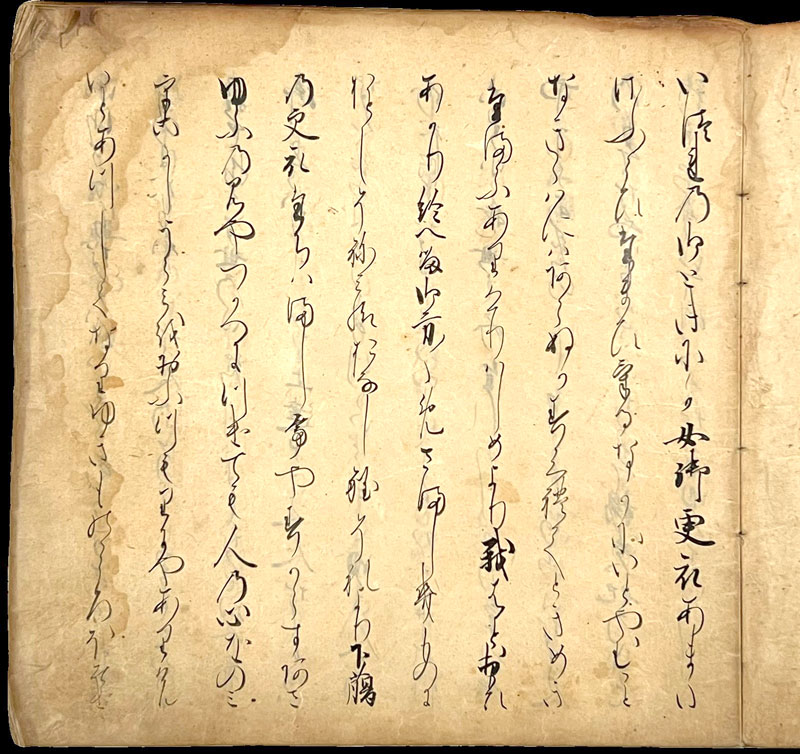 いつれの御ときにか女御更衣あまた
さふらひたまひけるなかにいとやむこと
なききはにはあらぬかすくれてときめき
たまふありけりはしめより我はと思ひ
あかり給へる御方〱めさましきものに
おとしめそねみ給おなし程それより下臈
の更衣たちはましてやすからすあさ
ゆふのみやつかへにつけても人の心をのみ
うこかしうらみをおふつもりにやありけん
いとあつしくなりゆきもの心ほそけ